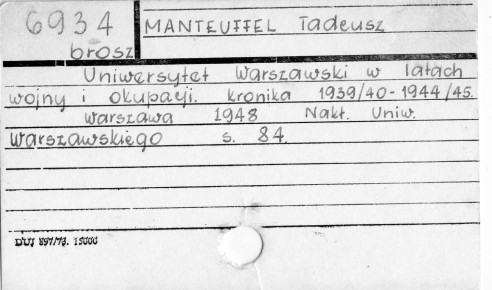 6934 MANTEUFFEL Tadeusz
brosz
Uniwersytet Warszawski w latach
wojny i okupacji. Kronika 1939/40-1944/45.
Warszawa 1948 Nakł. Uniw.
Warszawskiego s. 84.
DUJ 897/78. 15000